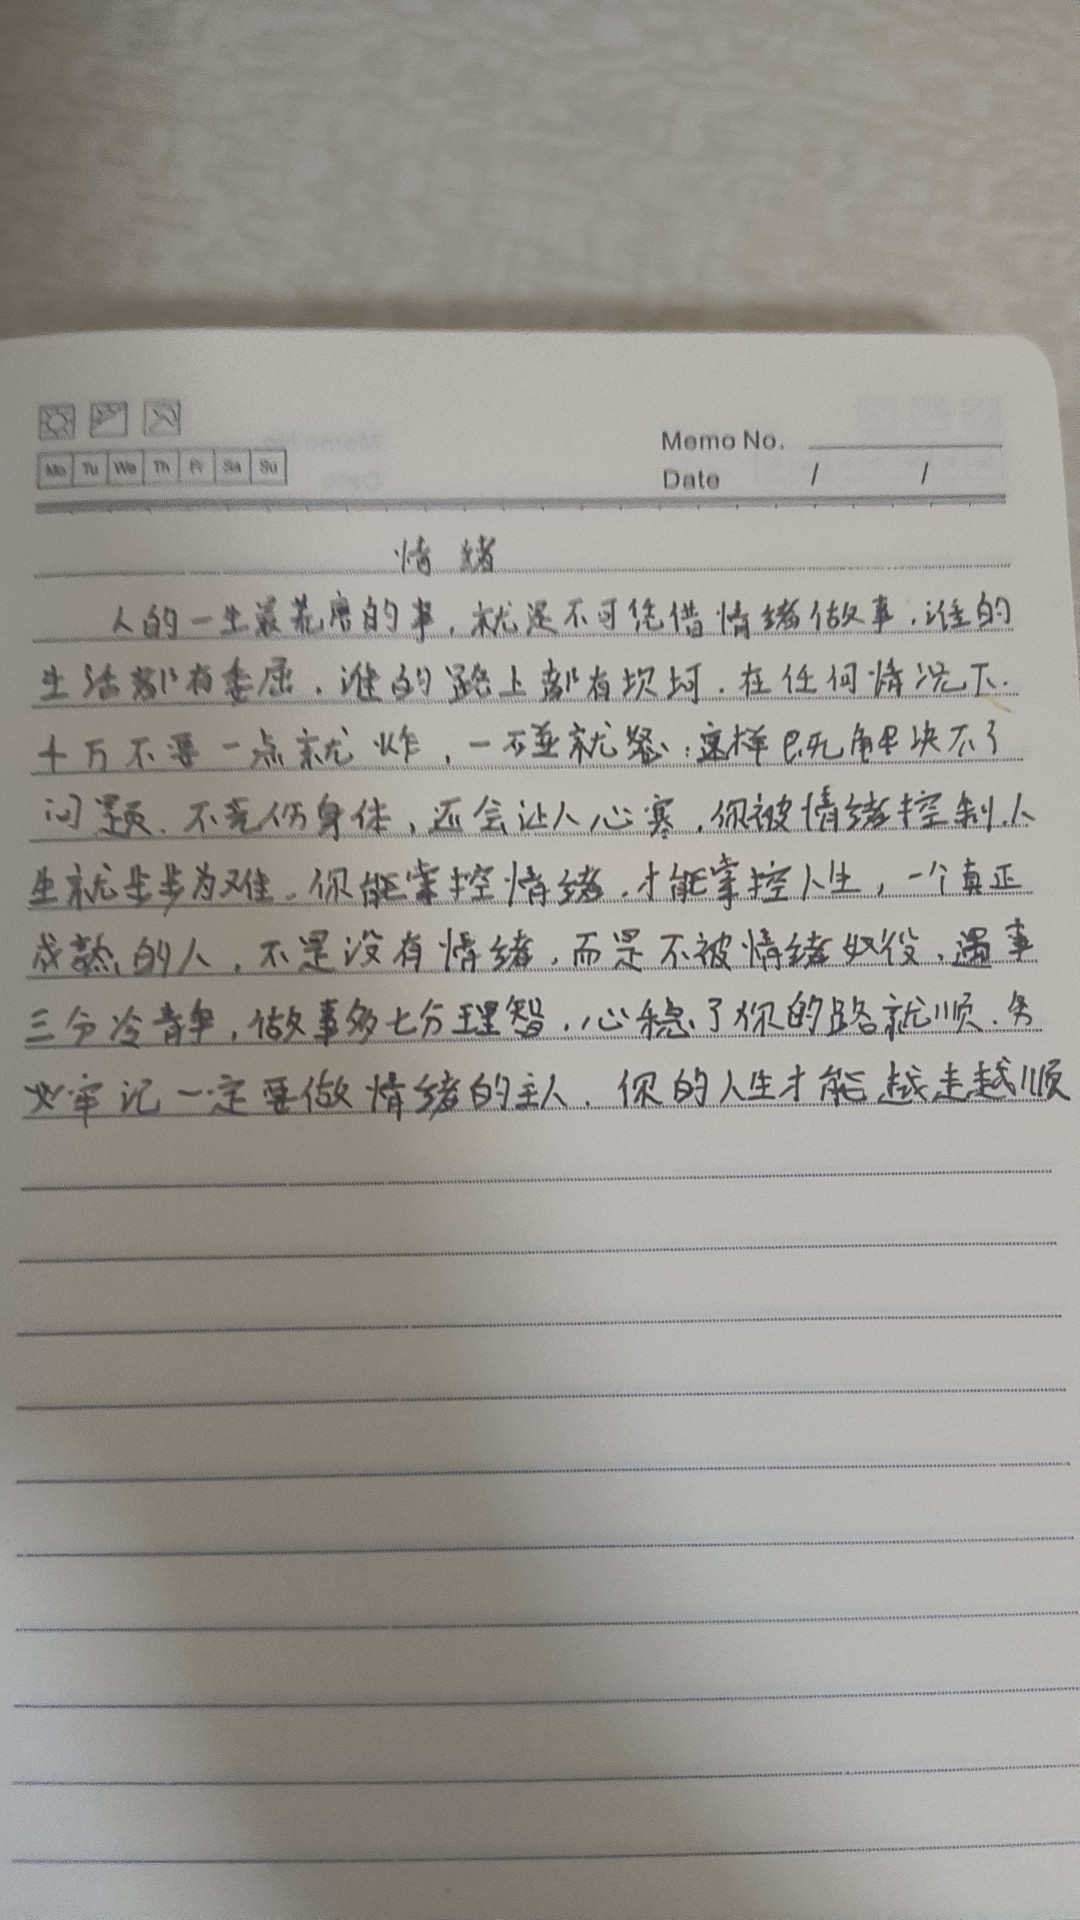 Mo Tu We Th Fr Sa Su
Memo No.
Date / /
情绪
人的一生最荒唐的事,就是不可凭借情绪做事.谁的
生活都有委屈.谁的路上都有坎坷.在任何情况下.
千万不要一点就炸,一不並就怒:这样既解决不了
问题.不竟伤身体,还会让人心寒.你被情绪控制.人
生就步步为难.你能掌控情绪.才能掌控人生,一个真正
成熟的人,不是没有情绪,而是不被情绪奴役、遇事
三分冷静,做事多七分理智.心稳了你的路就顺.务
必牢记一定要做情绪的主人.你的人生才能越走越顺